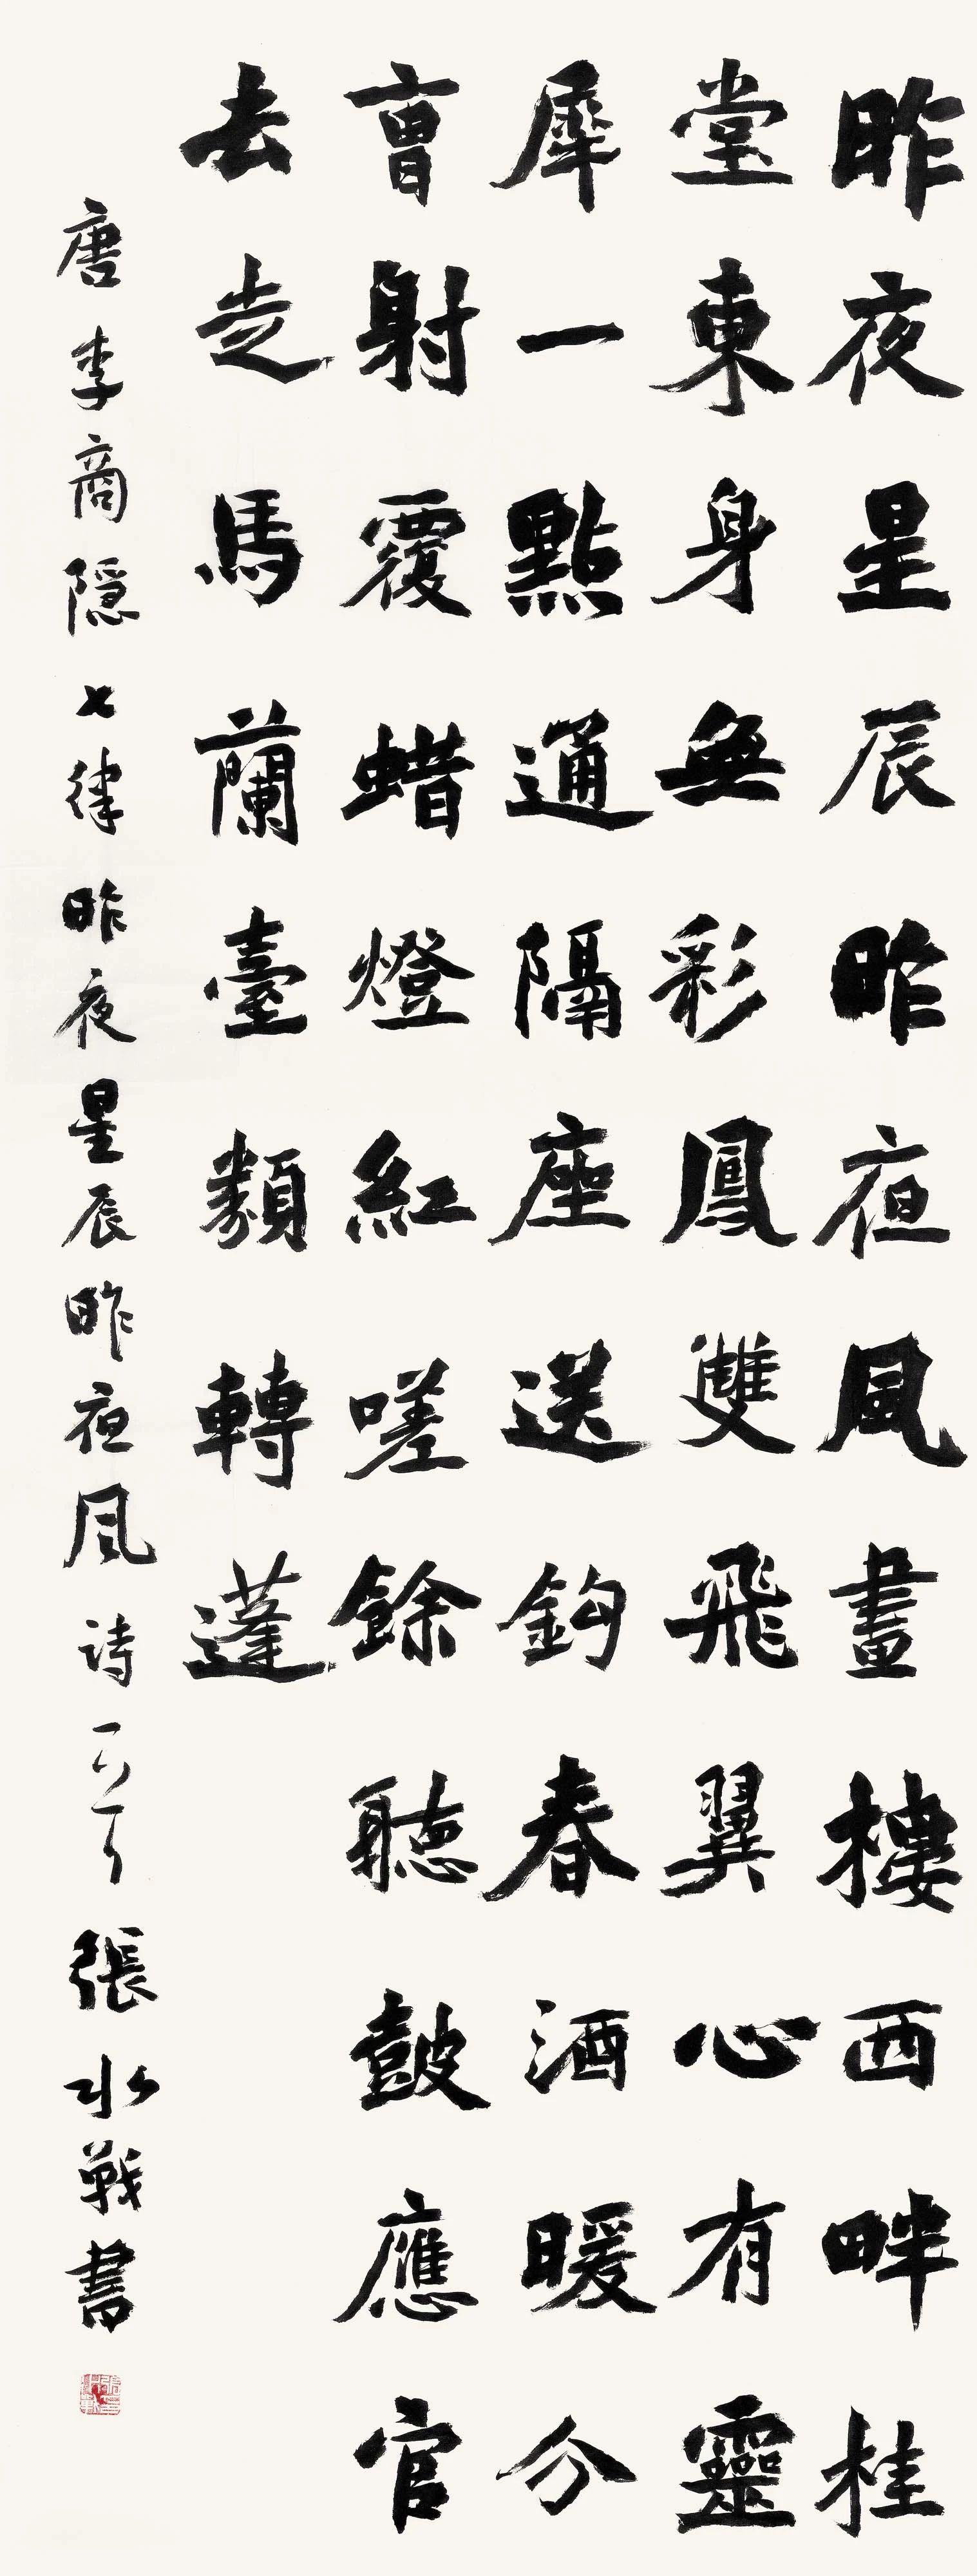 昨夜星辰昨夜風畫樓西畔桂
堂東身無彩鳳雙飛翼心有靈
犀一點通隔座送鈎春酒暖分
曹射覆蜡燈紅嗟餘聽鼓應官
去走馬蘭臺類轉蓬
唐李商隐七律昨夜星辰昨夜風诗一首張水戰書